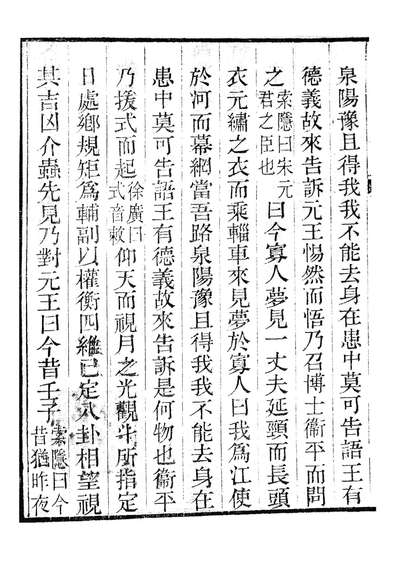 泉陽豫且得我我不能去身在患中莫可告語王有
德義故來告訴元王惕然而悟乃召博士衞平而問
之索隱曰宋元君之臣也曰今寡人夢見一丈夫延頸而長頭
衣元繡之衣而乘輜車來見夢於寡人曰我爲江使
於河而幕網當吾路泉陽豫且得我我不能去身在
患中莫可告語王有德義故來告訴是何物也衞平
乃援式而起徐廣曰式音敕仰天而視月之光觀斗所指定
日處鄉規矩爲輔副以權衡四維已定八卦相望視
其吉凶介蟲先見乃對元王曰今昔壬子索隱曰今昔猶昨夜